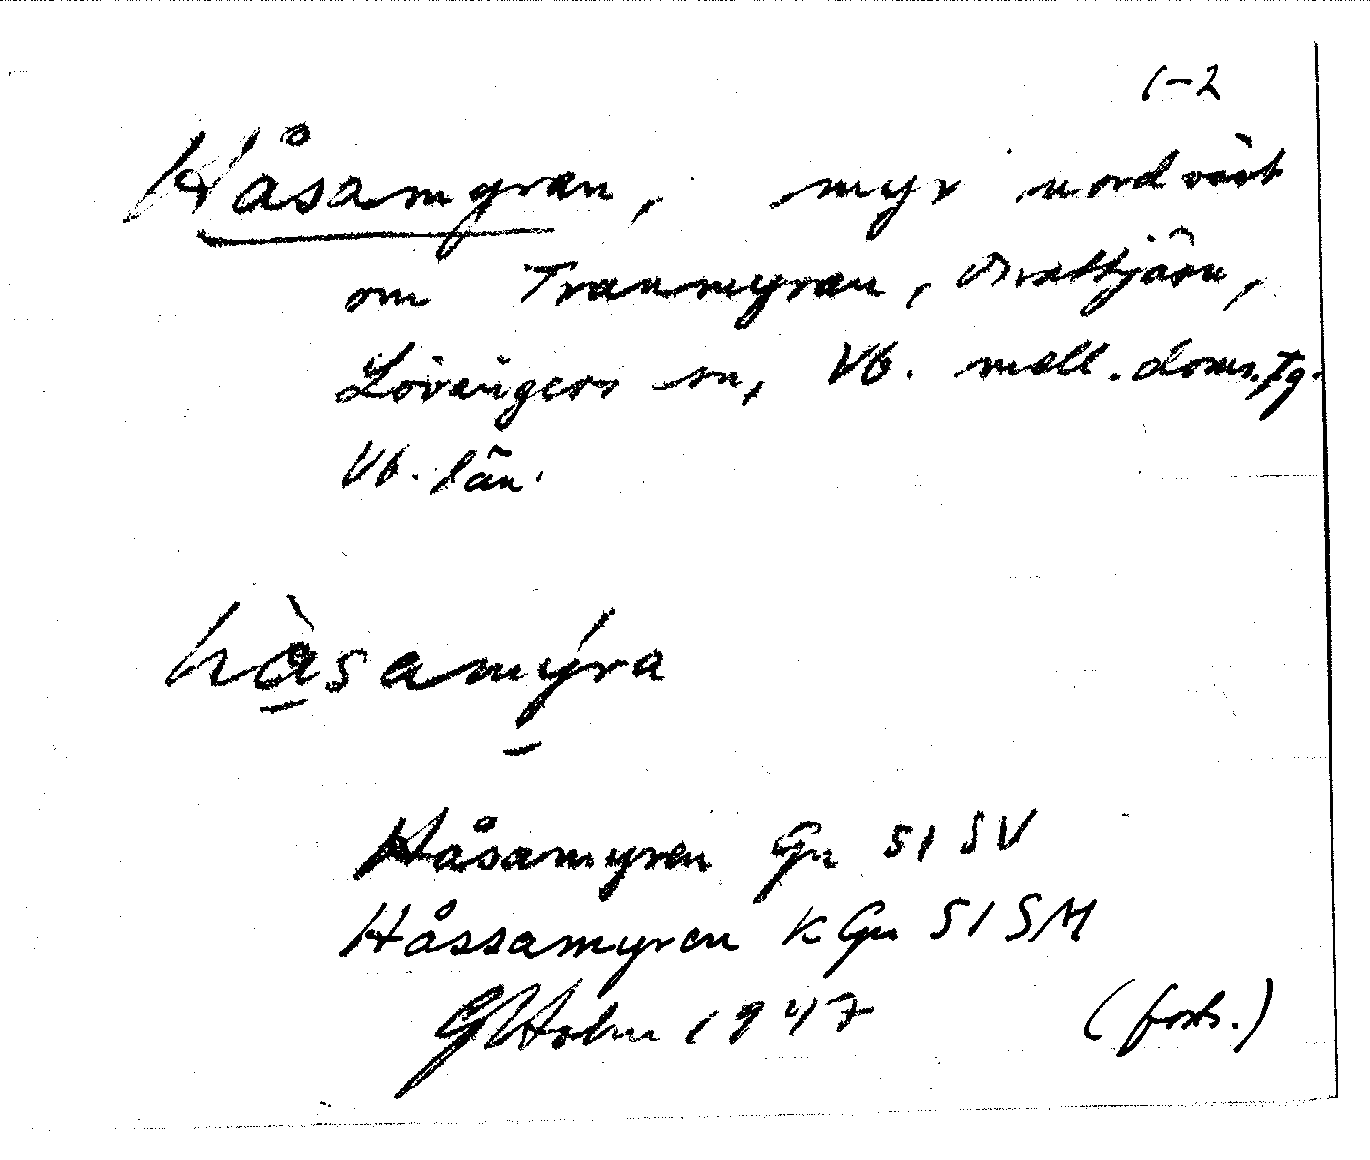 1-2
Håsamyran, myr nordväst
om Tranmyran, Önattjärn,
Lövångers sn, Vb. mell. doms. Tg.
Vb. län.
hàsamýra
Håsamyren Gn 51 SV
Håssamyren K Gn 51 SM
G Holm 1947 (forts.)